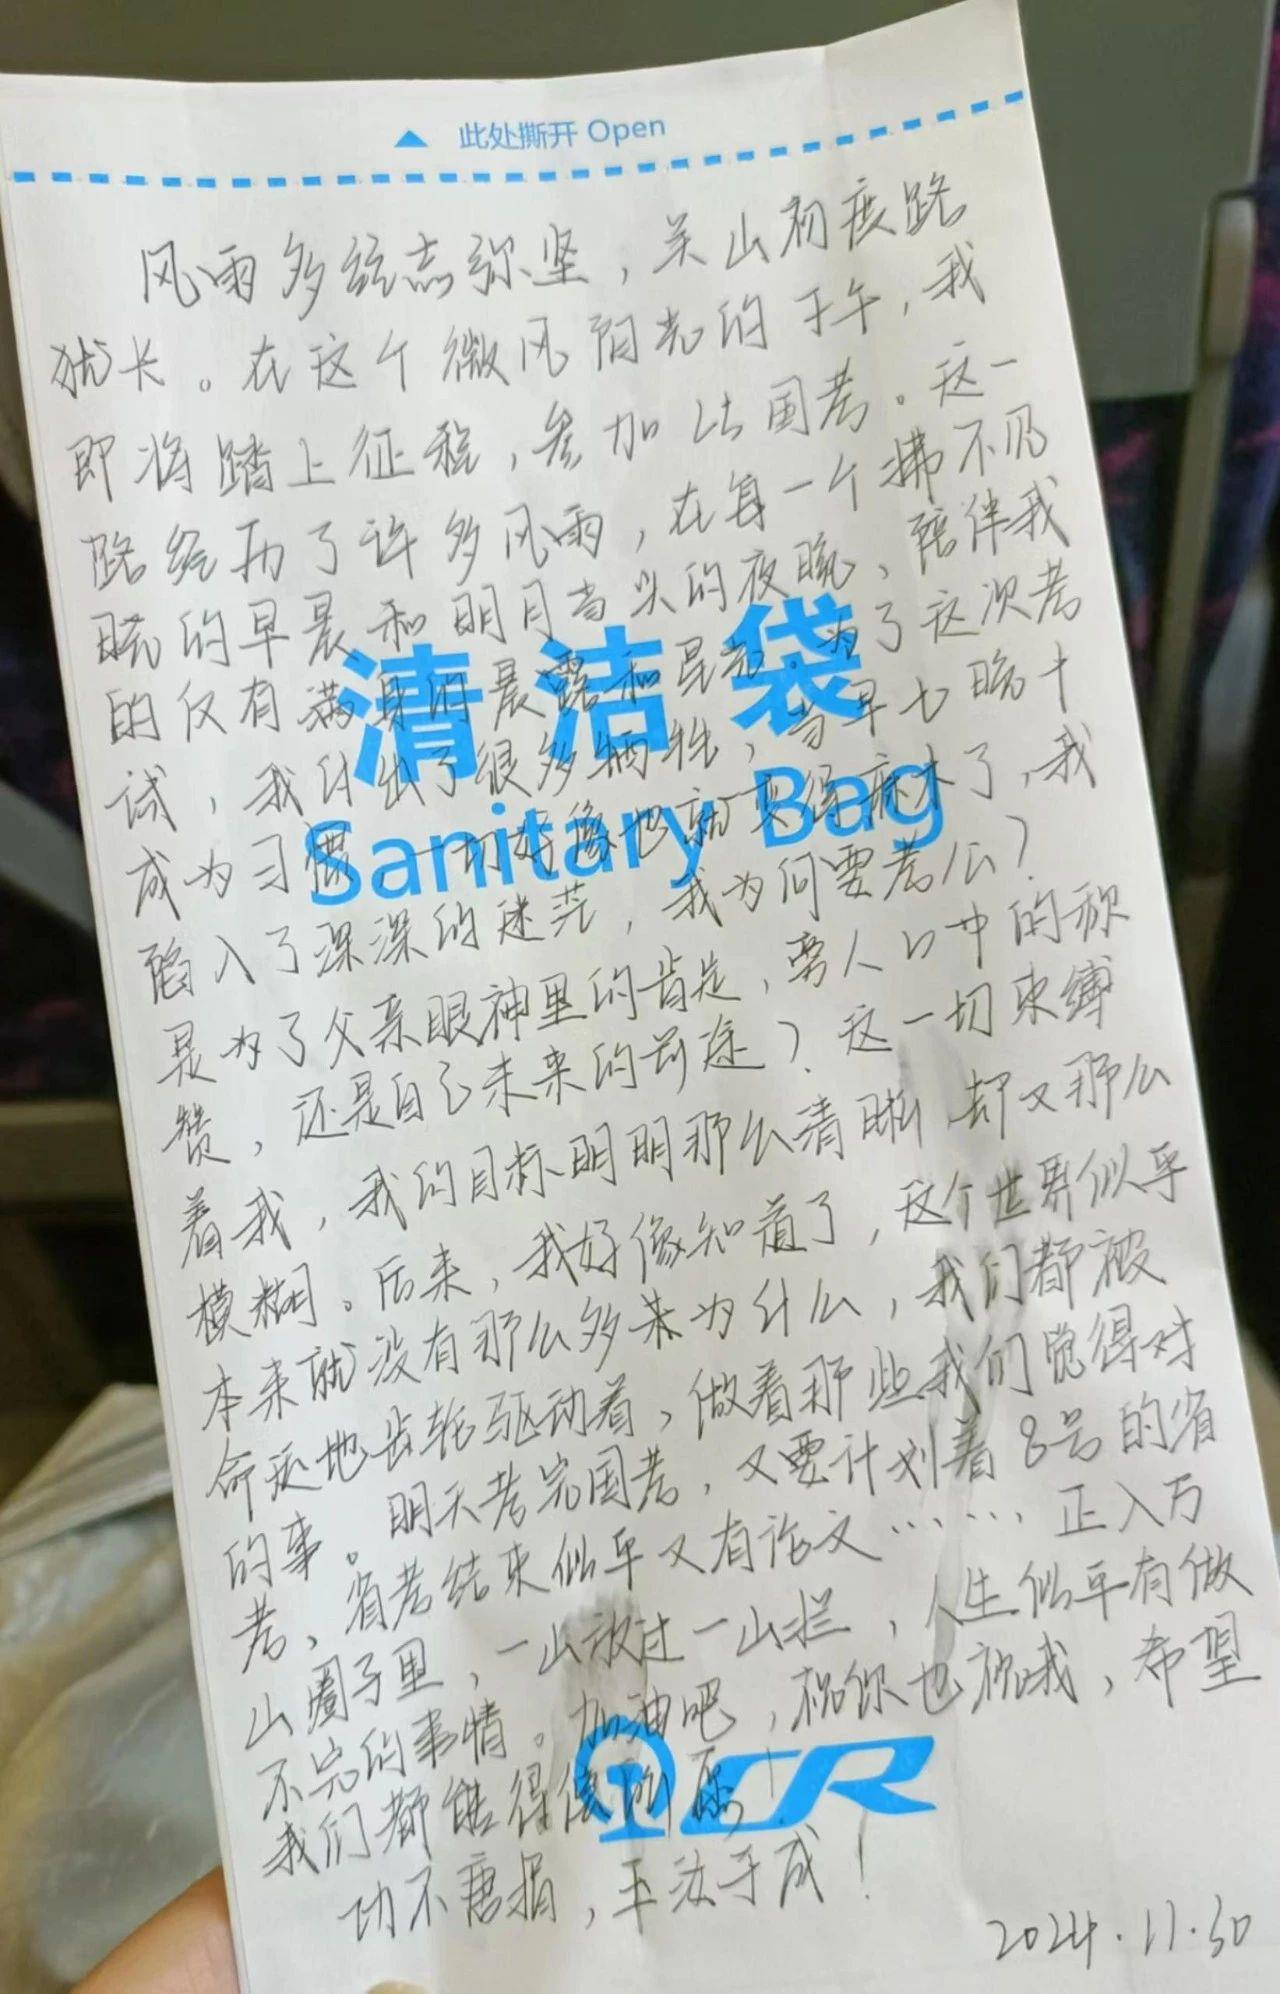 此处撕开 Open
风雨多经志弥坚，关山初度路
犹长。在这个微风阳光的下午，我
即将踏上征程，参加25国考。这一
路经历了许多风雨，在每一个拂不见
晓的早晨和明月当头的夜晚，陪伴我
的仅有满身的晨露和星光。为了这次考
试，我付出了很多牺牲，当早七晚十
成为习惯，一切好像也就变得麻木了，我
陷入了深深的迷茫，我为何要考公？
是为了父亲眼神里的肯定，旁人口中的称
赞，还是自己未来的前途？这一切束缚
着我，我的目标明明那么清晰却又那么
模糊。后来，我好像知道了，这个世界似乎
本来就没有那么多来为什么，我们都被
命运地齿轮驱动着，做着那些我们觉得对
的事。明天考完国考，又要计划着8号的省
考，省考结束似乎又有论文……，正入万
山圈子里，一山放过一山拦，人生似乎有做
不完的事情。加油吧，祝你也祝我，希望
我们都能得偿所愿！
功不唐捐，玉汝于成！
2024.11.30
清洁袋
Sanitary Bag
CR